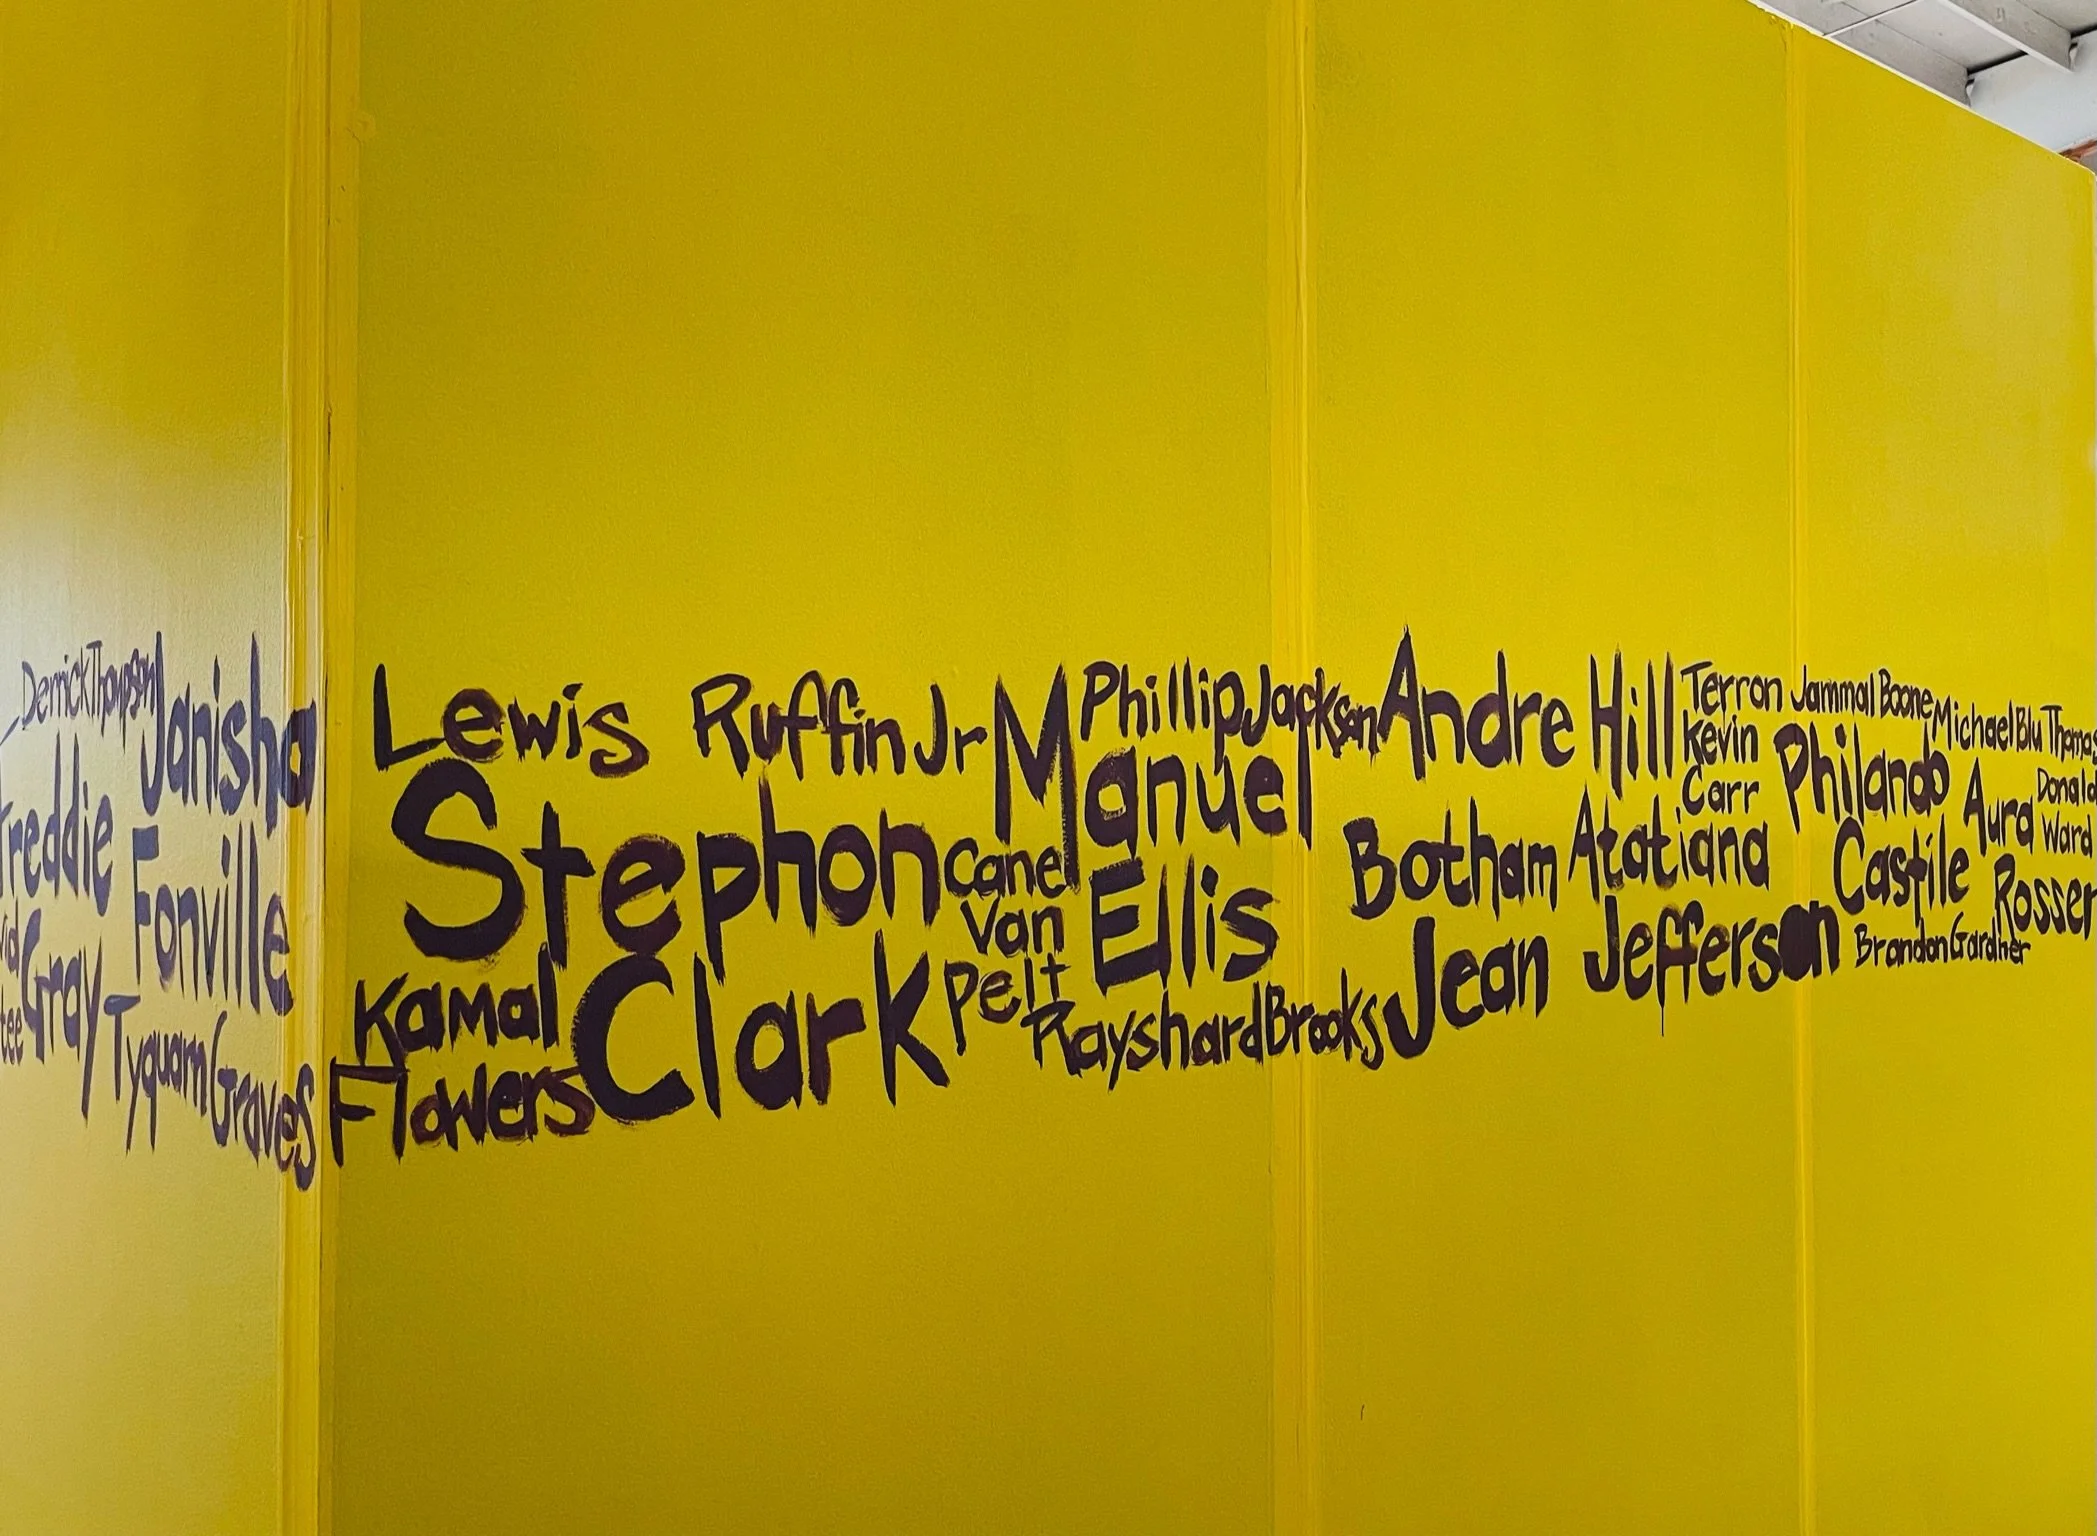 Derrick Thompson
Janisha
Fonville
Freddie
Gray
Tyquarn Graves
Lewis Ruffin Jr
Stephon
Clark
Kamal
Flowers
Canel
Van
Pelt
Manuel
Ellis
Phillip Jackson
Rayshard Brooks
Andre Hill
Botham
Jean
Atatiana
Jefferson
Terron Jammal Boone
Kevin
Carr
Philando
Castile
Michael Blu Thomas
Aura
Rosser
Donald
Ward
Brandon Gardner